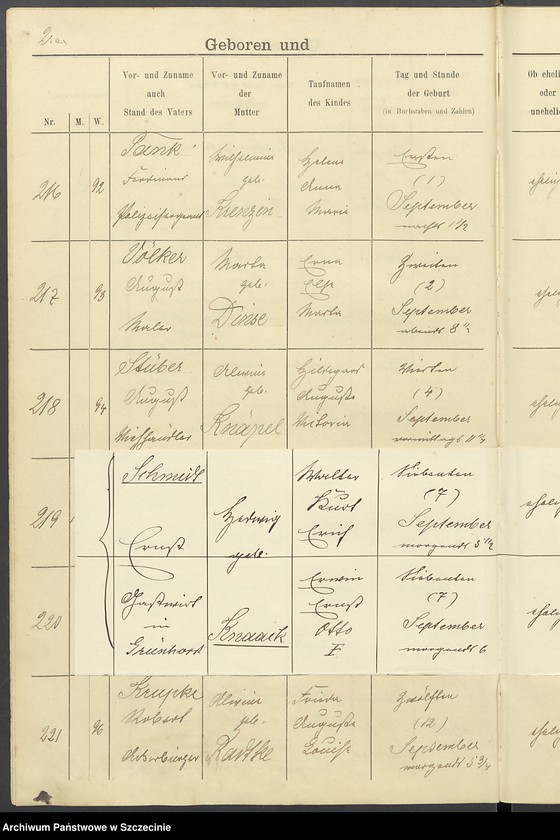 Geboren und
Nr.
M.
W.
Vor- und Zuname
auch
Stand des Vaters
Vor- und Zuname
der
Mutter
Taufnamen
des Kindes
Tag und Stunde
der Geburt
(in Buchstaben und Zahlen)
Ob eheli
oder
unehelic
216
92
Tank
Ferdinand
Polizeisergeant
Wilhelmine
geb.
Krenzin
Helene
Anna
Marie
Ersten
(1)
September
nachts 1 1/2
ehelich
217
93
Völker
August
Maler
Martha
geb.
Dinse
Erna
Else
Martha
Zweiten
(2)
September
abends 8
218
94
Stüber
August
Alwine
geb.
Knäpel
Hildegard
Auguste
Victoria
Vierten
(4)
September
vormittags
219
Schmidt
Ernst
Hedwig
geb.
Walter
Kurt
Erich
Siebenten
(7)
September
morgends 5 1/2
220
Gastwirt
in
Grünhorst
Knaack
Erwin
Ernst
Otto
Siebenten
(7)
September
morgends 6
221
96
Krupke
Robert
Ackerbürger
Alwine
geb.
Radtke
Frieda
Auguste
Louise
Zwölften
(12)
September
morgends 5 3/4
Archiwum Państwowe w Szczecinie